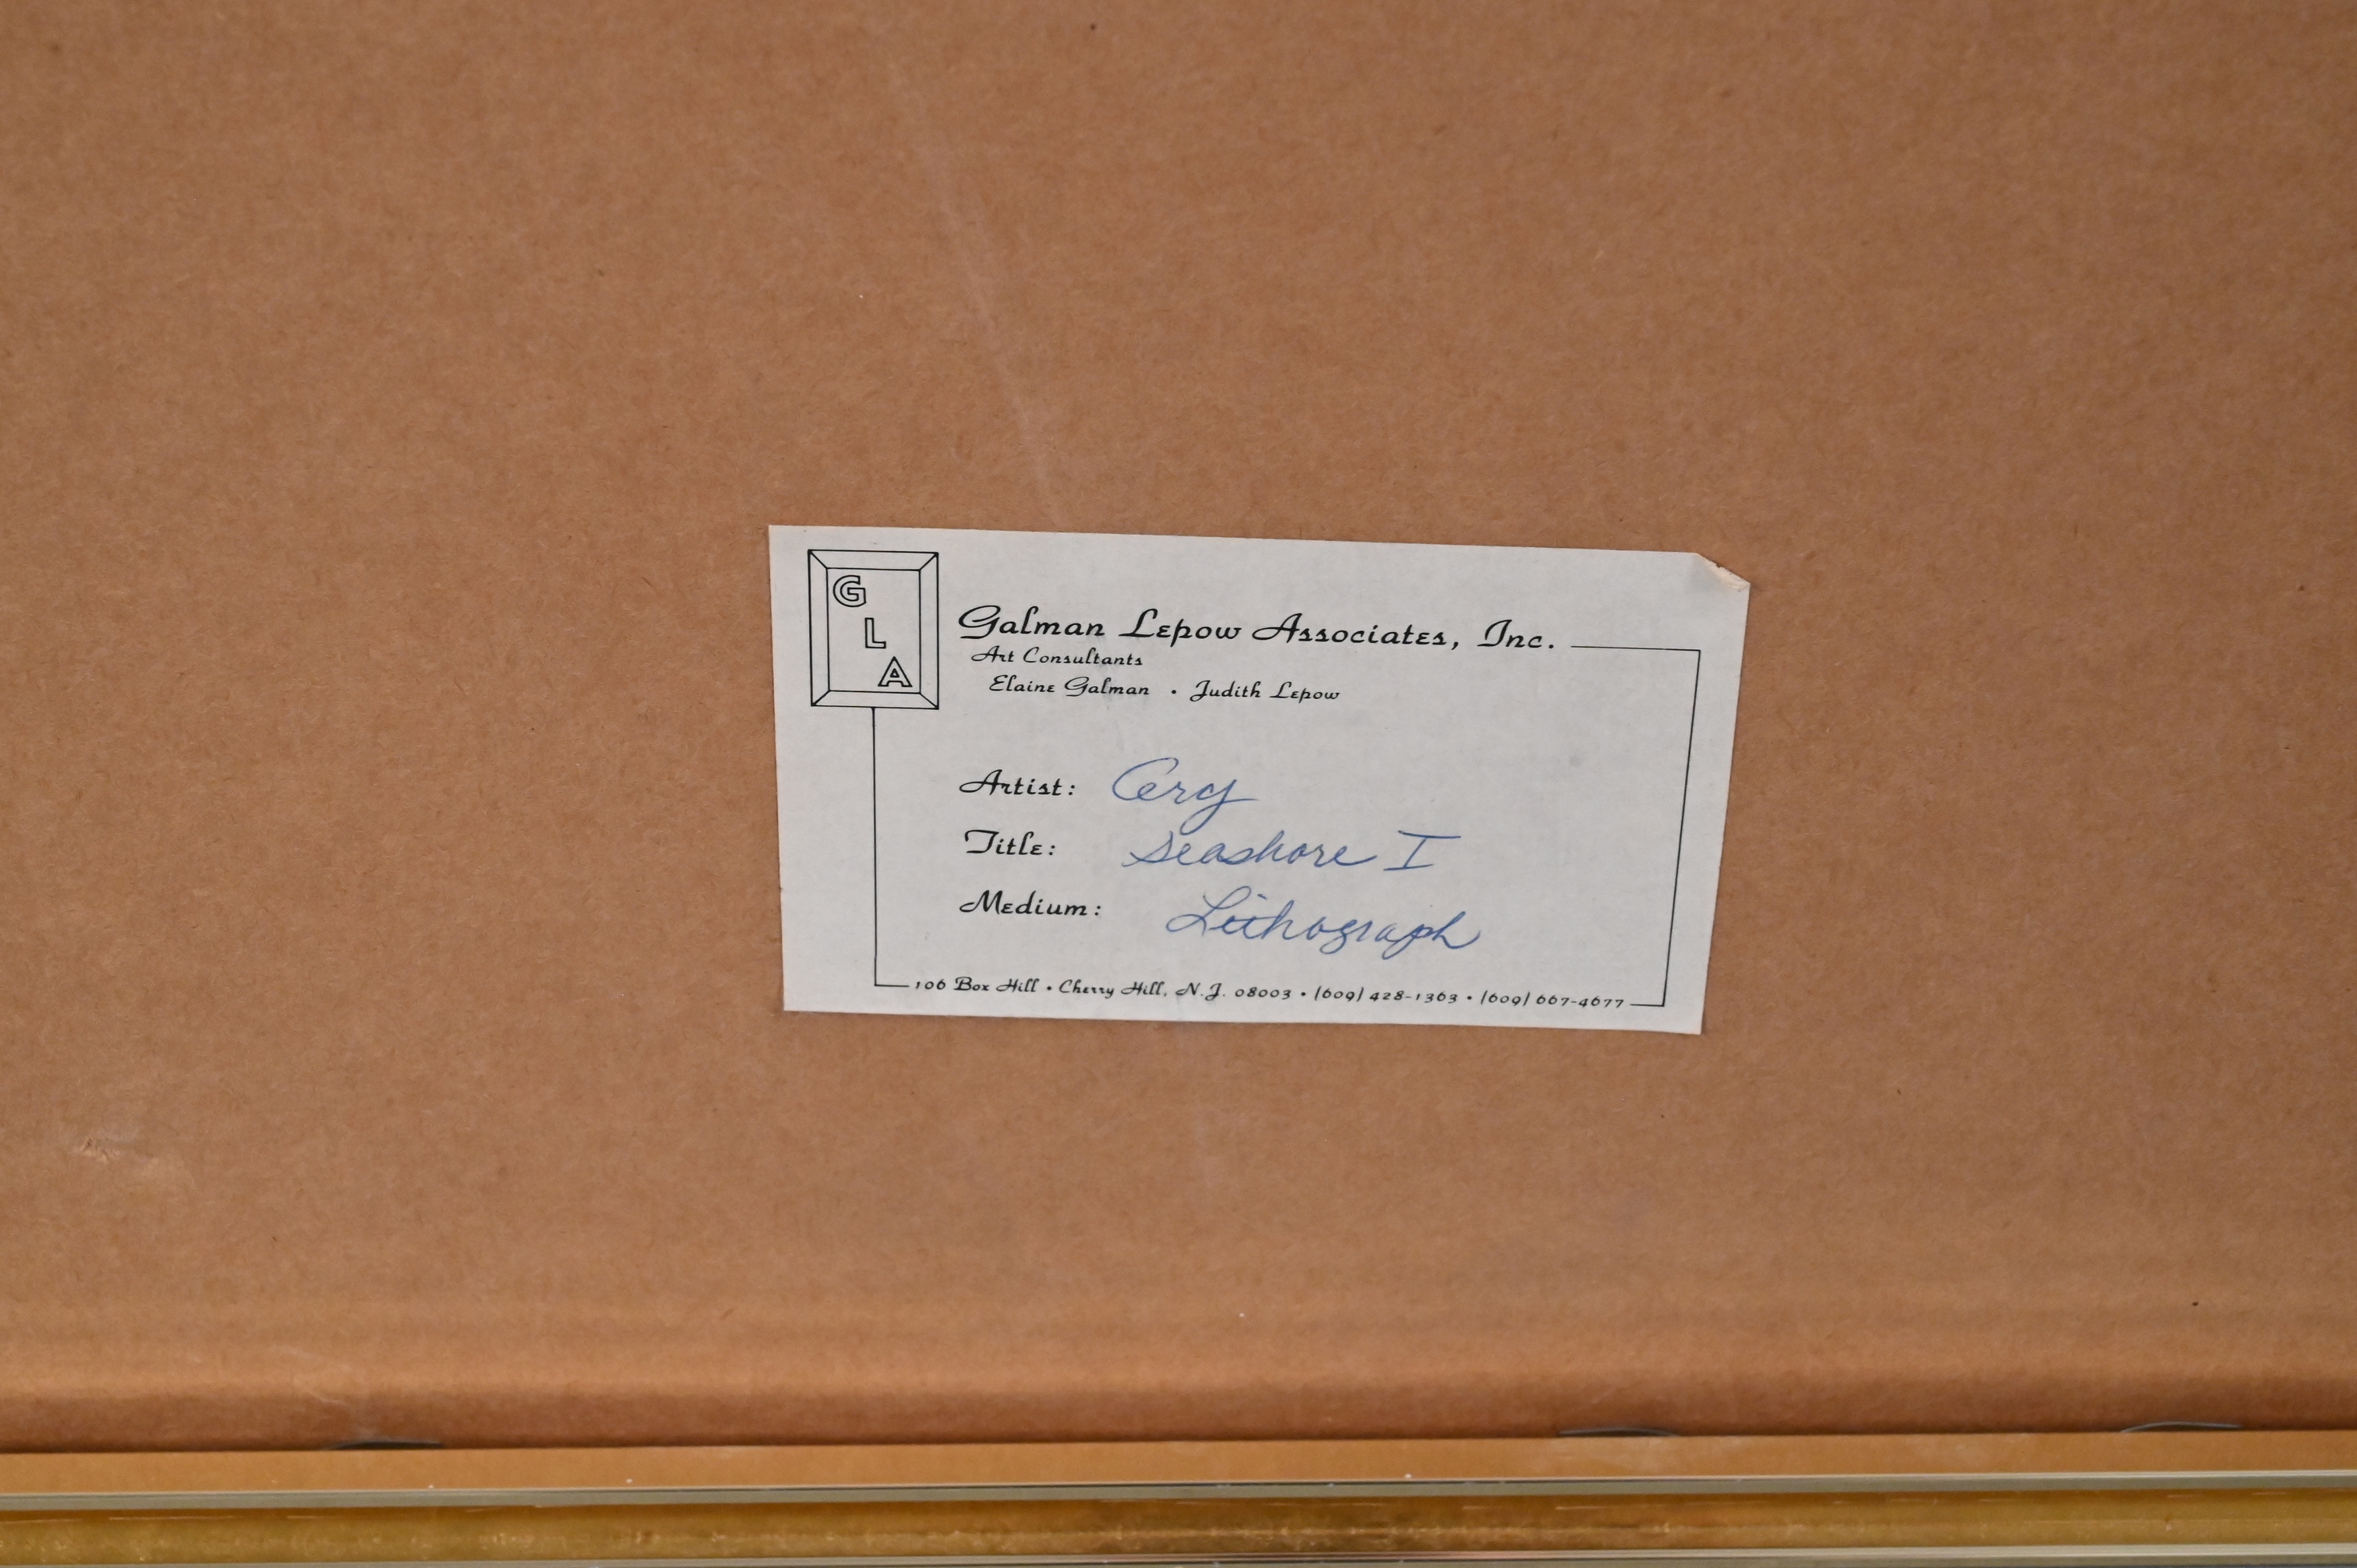 G
L
A
Galman Lepow Associates, Inc.
Art Consultants
Elaine Galman • Judith Lepow
Artist:
Title: Seashore I
Medium: Lithograph
106 Box Hill • Cherry Hill, N.J. 08003 • (609) 428-1363 • (609) 667-4677